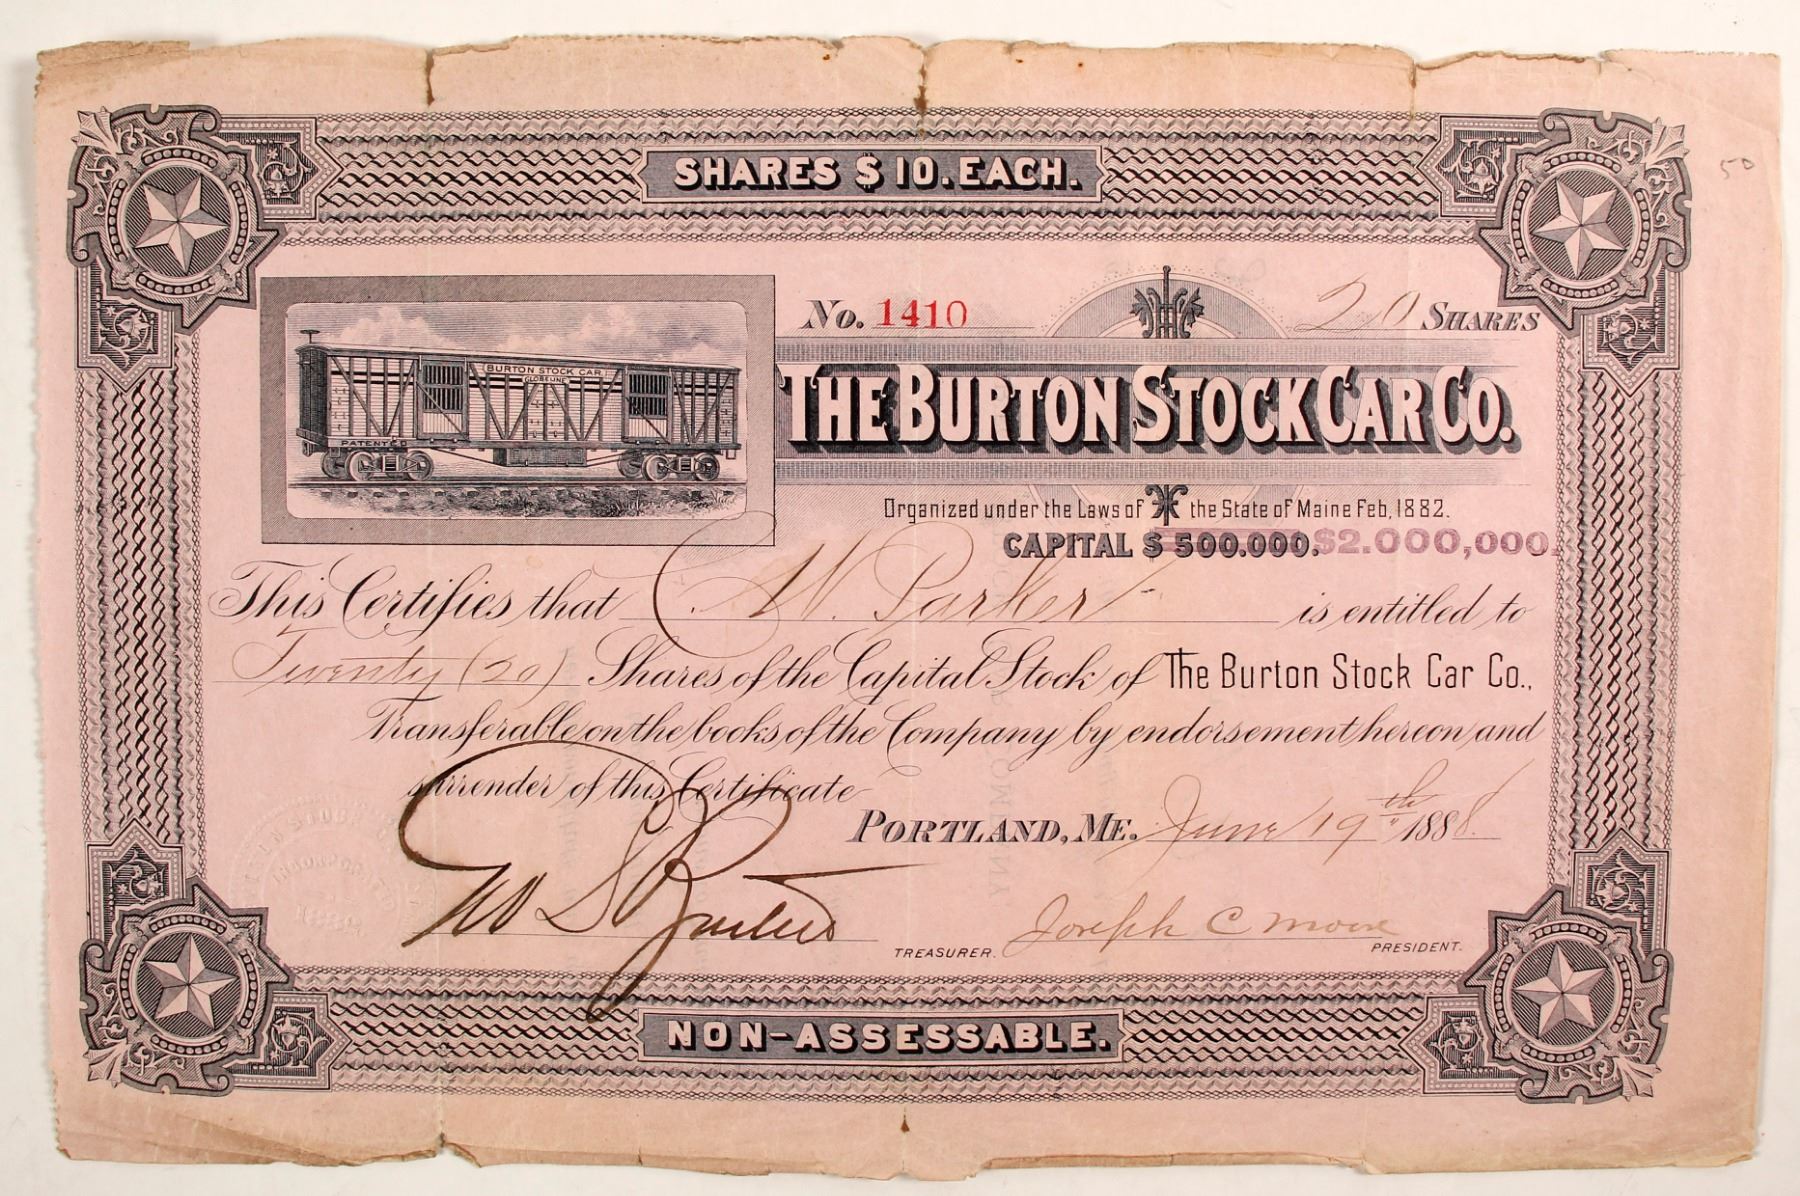 50
SHARES $10. EACH.
No. 1410
20 SHARES
BURTON STOCK CAR.
PATENTED
THE BURTON STOCK CAR CO.
Organized under the Laws of the State of Maine Feb, 1882.
CAPITAL $ 500.000. $2.000,000.
This Certifies that C. W. Parker is entitled to
Twenty (20) Shares of the Capital Stock of The Burton Stock Car Co.,
Transferable on the books of the Company by endorsement hereon and
surrender of this Certificate
PORTLAND, ME. June 19th 1888.
INCORPORATED
1882
TREASURER.
Joseph C Moore
PRESIDENT.
NON-ASSESSABLE.